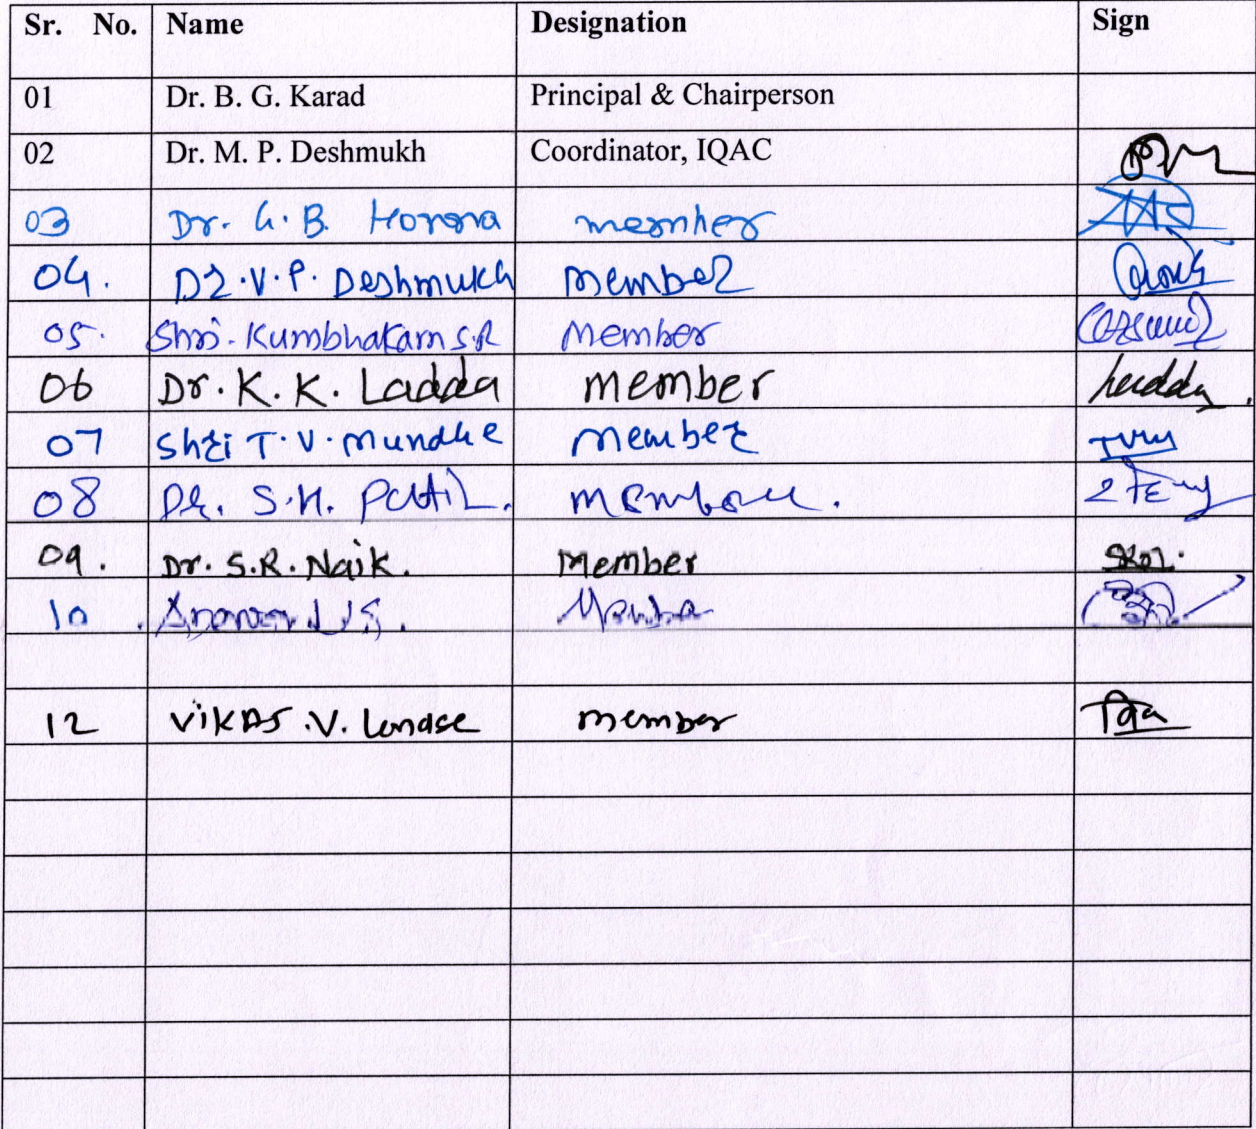 Sr. No. Name Designation Sign
01 Dr. B. G. Karad Principal & Chairperson
02 Dr. M. P. Deshmukh Coordinator, IQAC
03 Dr. G. B. member
04. Dr. V. P. Deshmukh member
05. Shri. Kumbhakarn S.R Member
06 Dr. K. K. Ladda member
07 Shri T. V. Mundhe member
08 Dr. S. H. Patil. member.
09. Dr. S. R. Naik. Member
10 Member
12 Vikas .V. Londse member